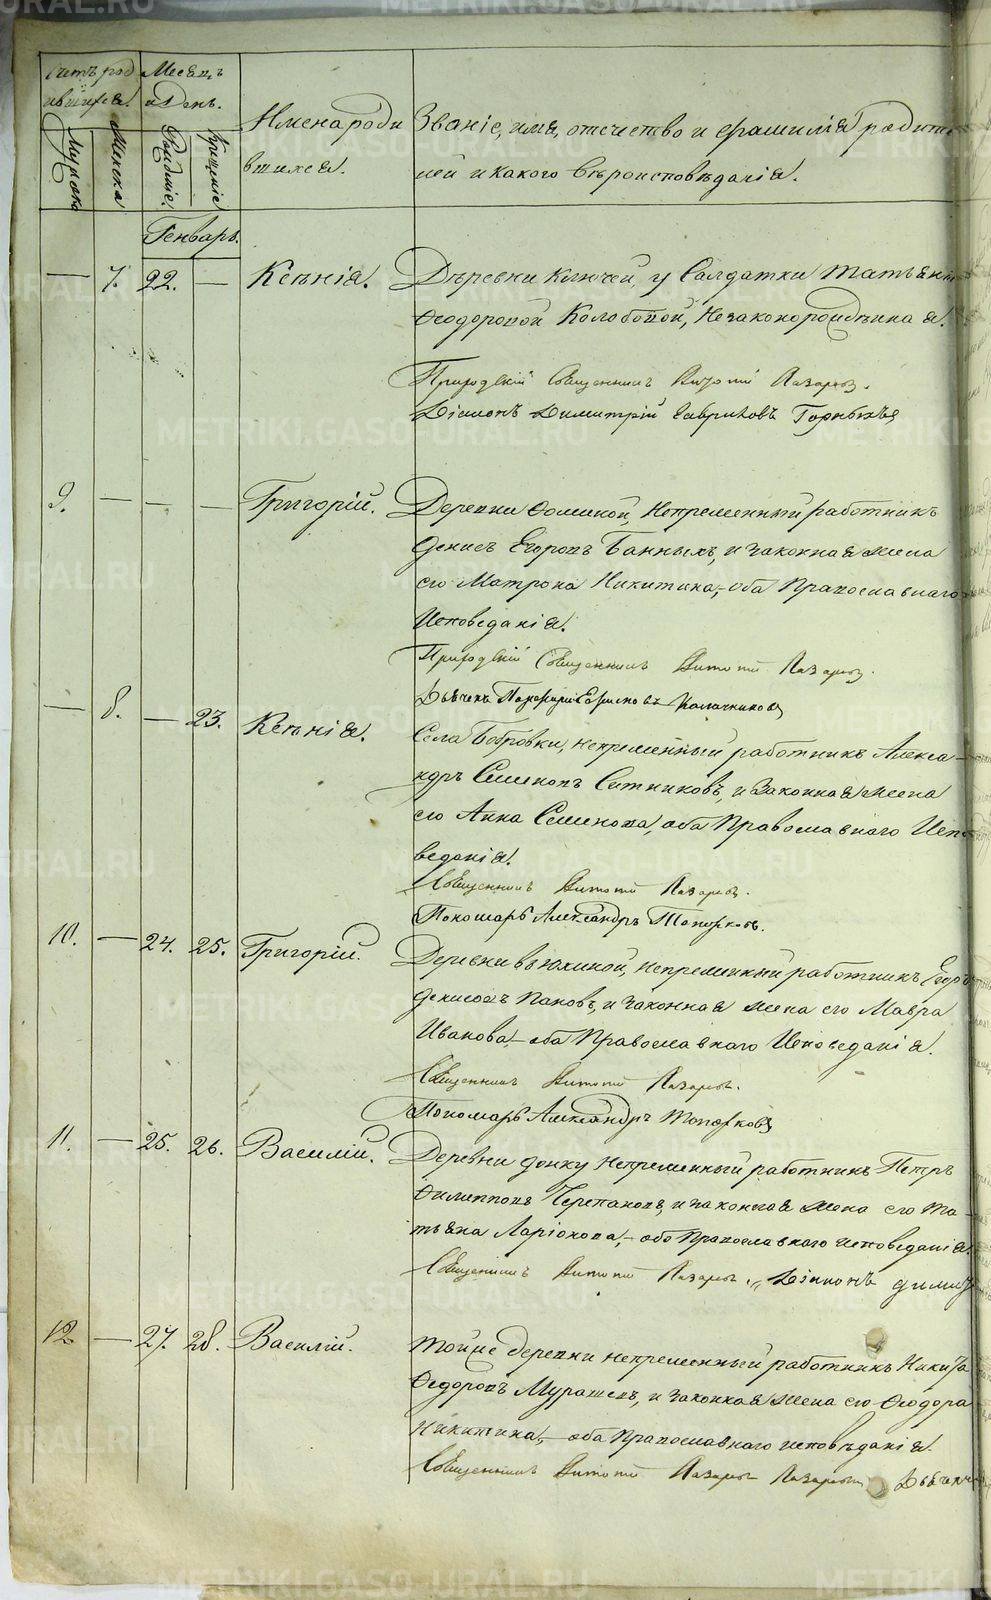 Счетъ род Месецъ
ившихся. и День.
Имена роди Званіе, имя, отечество и фамилія родите
вшихся. лей и какого вѣроисповѣданія.
Мужска Женска Рожденіе. Крещеніе
Генварь.
— 7. 22. — Ксѣнія. Дѣревни Ключей, у Салдатки Татьяны
Ѳеодоровой Колобовой, Незаконорождѣнная.
Приходскій Священникъ Лазаревъ.
Діаконъ Димитрій Гавриловъ
9. — — — Григорій. Деревни Ѳоминой, Непременный работникъ
Денисъ Егоровъ Банныхъ, и законная жена
его Матрона Никитина, оба Православнаго
Исповеданія.
Приходскій Священникъ Лазаревъ.
Дьячекъ Калачниковъ
— 8. — 23. Ксѣнія. Села Бобровки, непременный работникъ Алекса-
ндръ Семеновъ Ситниковъ, и Законная жена
его Анна Семенова, оба Православнаго Испо
веданія.
Священникъ Лазаревъ.
Пономарь Александръ Топорковъ.
10. — 24. 25. Григорій. Деревни Вьюхиной, непременный работникъ Егоръ
Денисовъ Пановъ, и законная жена его Мавра
Иванова, оба Православнаго Исповеданія.
Священникъ Лазаревъ.
Пономарь Александръ Топорковъ
11. — 25. 26. Василій. Деревни Непременный работникъ Петръ
Филипповъ Черепановъ, и законная жена его Та-
тьяна Ларіонова, оба Православнаго исповеданія.
Священникъ Лазаревъ. Діаконъ Димит
12 — 27. 28. Василій. Тойже деревни непременный работникъ Никита
Ѳедоровъ Мурашевъ, и законная жена его Ѳеодора
Никитина, — оба Православнаго исповѣданія.
Священникъ Лазаревъ Лазаревъ Дьячекъ
METRIKI.GASO-URAL.RU